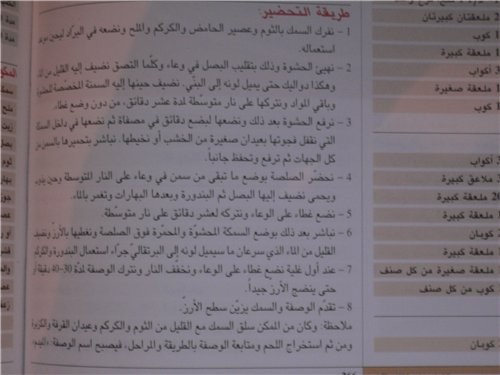 طريقة التحضير:
1 – نفرك السمك بالثوم وعصير الحامض والكركم والملح ونضعه في البرّاد ليحين موعد
استعماله.
2 – نهيئ الحشوة وذلك بتقليب البصل في وعاء وكلّما التصق نضيف إليه القليل من الماء
وهكذا دواليك حتى يميل لونه إلى البنّي. نضيف حينها إليه السمنة المخصّصة للحشوة
وباقي المواد ونتركها على نار متوسّطة لمدة عشر دقائق، من دون وضع غطاء.
3 – نرفع الحشوة بعد ذلك ونضعها لبضع دقائق في مصفاة ثم نضعها في داخل السمكة
التي نقفل فجوتها بعيدان صغيرة من الخشب أو نخيطها. نباشر بتحميرها بالسمن من
كل الجهات ثم ترفع وتحفظ جانباً.
4 – نحضّر الصلصة بوضع ما تبقى من سمن في وعاء على النار المتوسطة وحين يذوب
ويحمى نضيف إليها البصل ثم البندورة وبعدها البهارات وتغمر بالماء.
5 – نضع غطاء على الوعاء ونتركه لعشر دقائق على نار متوسّطة.
6 – نباشر بعد ذلك بوضع السمكة المحشوّة والمحمّرة فوق الصلصة ونغطيها بالأرزّ ونضيف
القليل من الماء الذي سرعان ما سيميل لونه إلى البرتقاليّ جرّاء استعمال البندورة والكركم
7 – عند أول غلية نضع غطاء على الوعاء ونخفّف النار ونترك الوصفة لمدّة 30-40 دقيقة أو
حتى ينضج الأرزّ جيداً.
8 – تقدّم الوصفة والسمك يزيّن سطح الأرزّ.
ملاحظة: وكان من الممكن سلق السمك مع القليل من الثوم والكركم وعيدان القرفة والكزبرة
ومن ثم استخراج اللحم ومتابعة الوصفة بالطريقة والمراحل، فيصبح اسم الوصفة
ملعقتان كبيرتان
1 كوب
1 ملعقة كبيرة
3 أكواب
1 ملعقة صغيرة
1 كوب
أكواب
ملاعق كبيرة
ملعقة كبيرة
ملعقة كبيرة
كوب
ملعقة
ملعقة صغيرة من كل صنف
كوب من كل صنف
كوبان